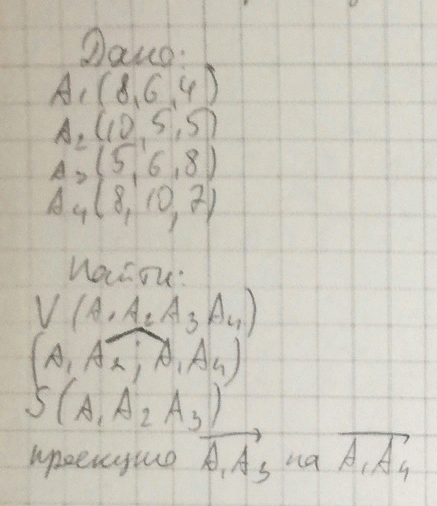 Дано:
A₁(8,6,4)
A₂(10,5,5)
A₃(5,6,8)
A₄(8,10,7)
Найти:
V(A₁A₂A₃A₄)
(A₁A₂; A₁A₄)
S(A₁A₂A₃)
проекцию A₁A₃ на A₁A₄